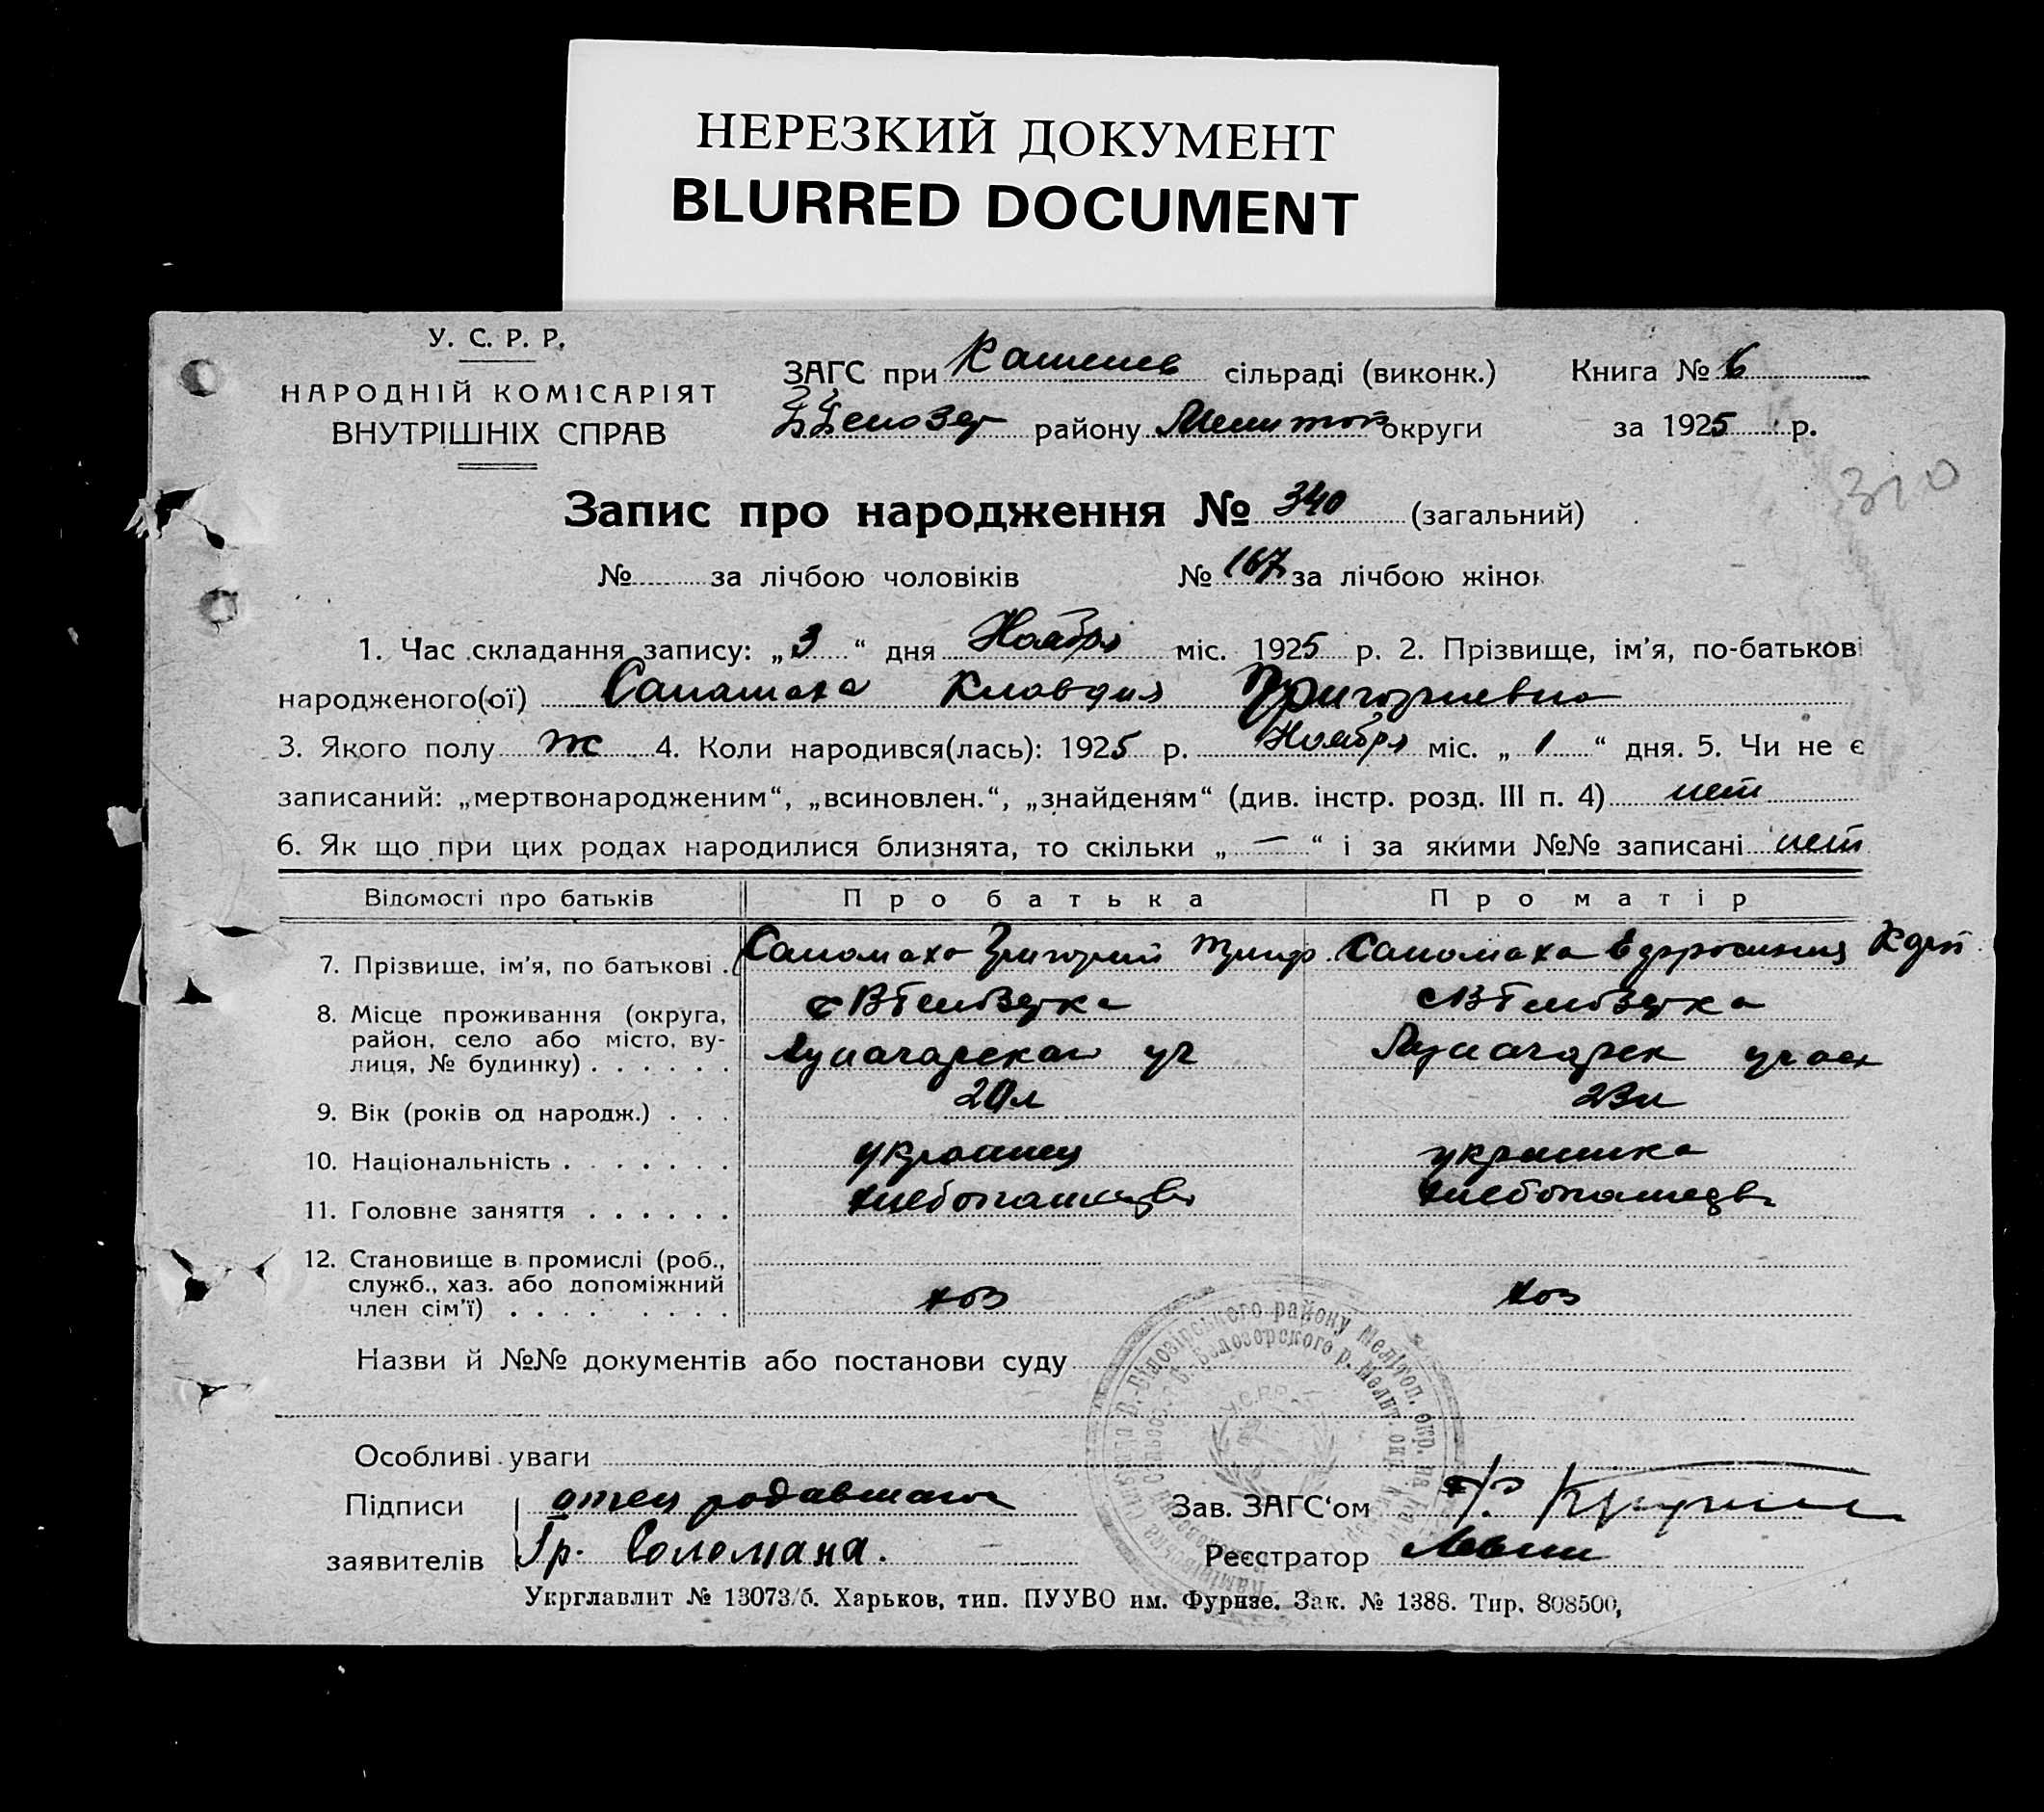 НЕРЕЗКИЙ ДОКУМЕНТ
BLURRED DOCUMENT
У. С. Р. Р.
НАРОДНІЙ КОМІСАРІЯТ
ВНУТРІШНІХ СПРАВ
ЗАГС при сільраді (виконк.)
району Мелитоп округи
Книга № 6
за 1925 р.
310
Запис про народження № 340 (загальний)
№ за лічбою чоловіків № 167 за лічбою жінок
1. Час складання запису: „3“ дня Ноября міс. 1925 р. 2. Прізвище, ім'я, по-батькові
народженого(ої) Саламаха Клавдия Григориевна
3. Якого полу ж 4. Коли народився(лась): 1925 р. Ноября міс. „1“ дня. 5. Чи не є
записаний: „мертвонародженим“, „всиновлен.“, „знайденям“ (див. інстр. розд. III п. 4) нет
6. Як що при цих родах народилися близнята, то скільки „—“ і за якими №№ записані нет
Відомості про батьків Про батька Про матір
7. Прізвище, ім'я, по батькові . Саломаха Григорий Триф. Саломаха Ефросиния
8. Місце проживання (округа,
район, село або місто, вулиця, № будинку) . . . . . .
с ВБелозерка с ВБелозерка
Луначарская уч Луначарск участ
9. Вік (років од народж.) . . . 20л 23л
10. Національність . . . . . . . украинец украинка
11. Головне заняття . . . . . . хлебопашество хлебопашество
12. Становище в промислі (роб.,
служб., хаз. або допоміжний
член сім'ї) . . . . . . . . хоз хоз
Назви й №№ документів або постанови суду
Особливі уваги
Підписи отец
заявителів Гр. Соломаха.
Зав. ЗАГС'ом
Реєстратор
Укрглавлит № 13073/б. Харьков, тип. ПУУВО им. Фрунзе. Зак. № 1388. Тир. 808500,